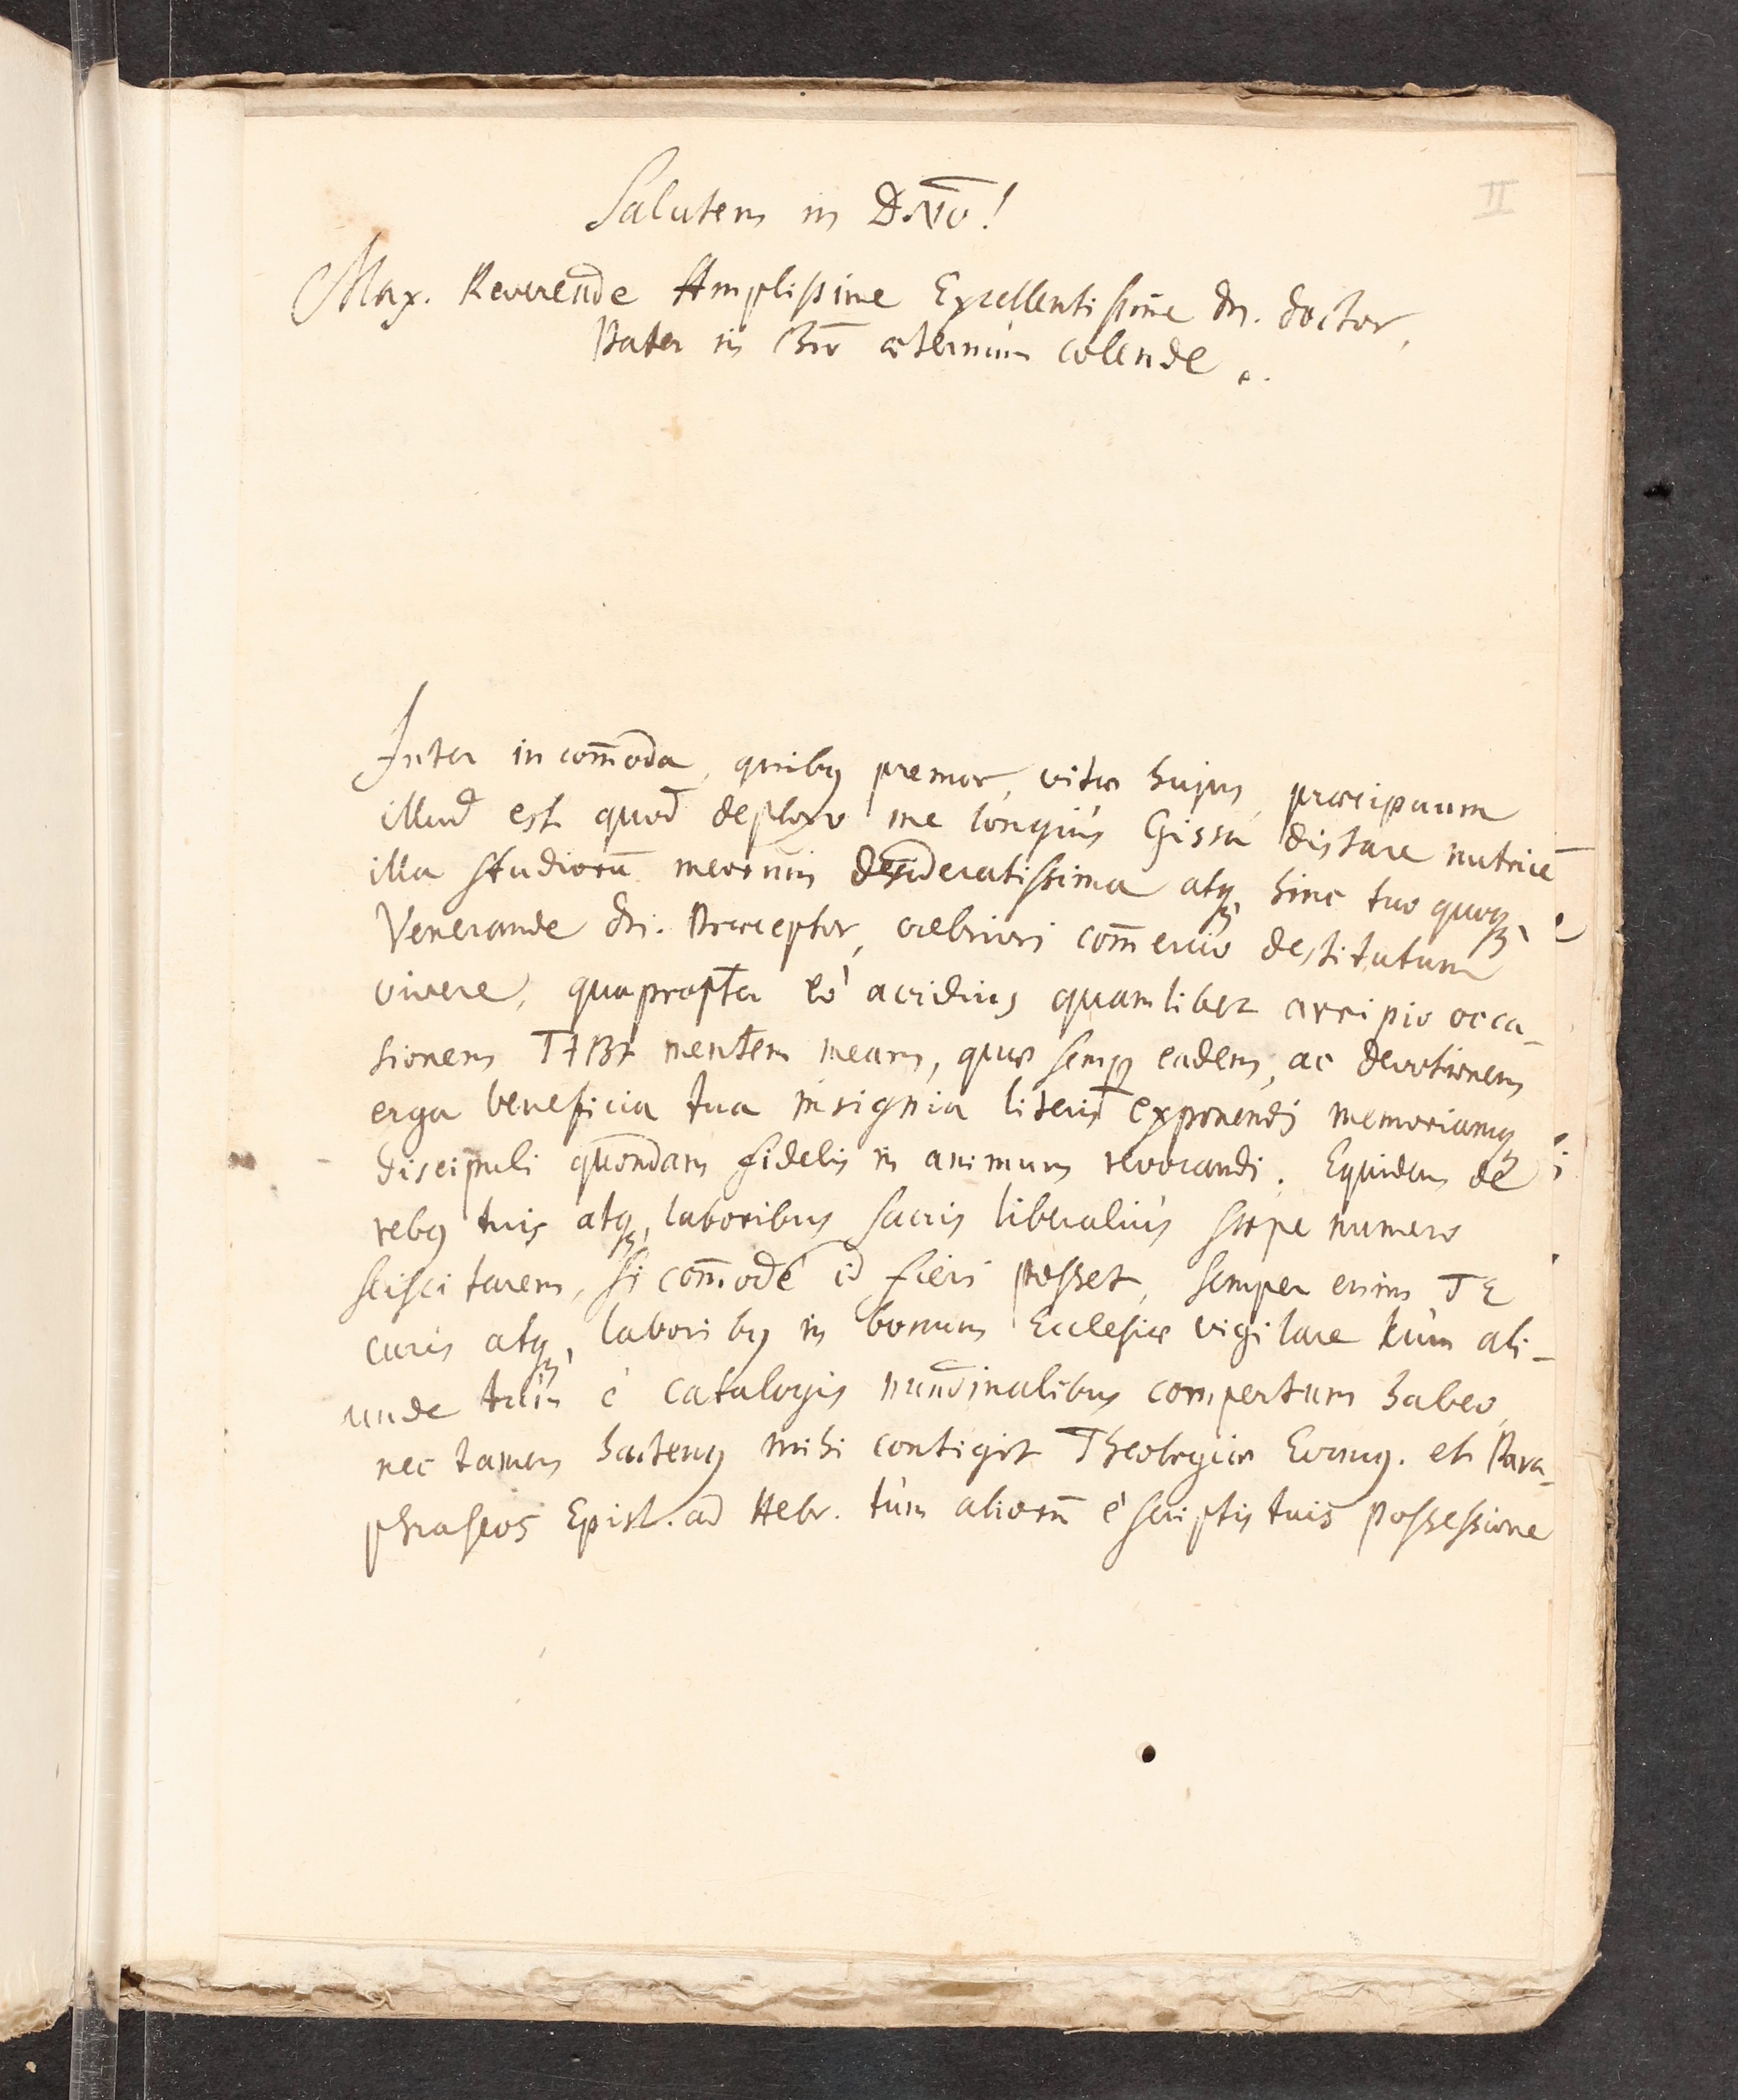 II
Salutem in DNō!
Max. Reverende Amplissime Excellentissime Dn. Doctor,
Pater in Chrō æternùm colende.
Inter incom̄oda, quibꝯ premor, vitæ hujus, præcipuum
illud est quod deploro me longiùs Gissâ distare nutricē
illa studiorū meorum desideratissima atqꝫ hinc tuo quoqꝫ
Venerande Dn. Præceptor, crebriori com̄ercio destitutum
vivere, quapropter eò avidius quamlibet arripio occa-
sionem TIBI mentem meam, quæ semp eadem, ac devotionem
erga beneficia tua insignia literis exponendi memoriamqꝫ
discipuli quondam fidelis in animum revocandi. Equidem de
rebꝯ tuis atqꝫ laboribus sacris liberaliùs sæpe numero
sciscitarem, si com̄odè id fieri posset, semper enim TE
curis atqꝫ laboribꝯ in bonum Ecclesiæ vigilare tùm ali-
unde tùm è catalogis nundinalibus compertum habeo,
nec tamen hactenꝯ mihi contigit Theologiæ Evang. et Para-
phraseos Epist. ad Hebr. tùm aliorū è scriptis tuis possessione